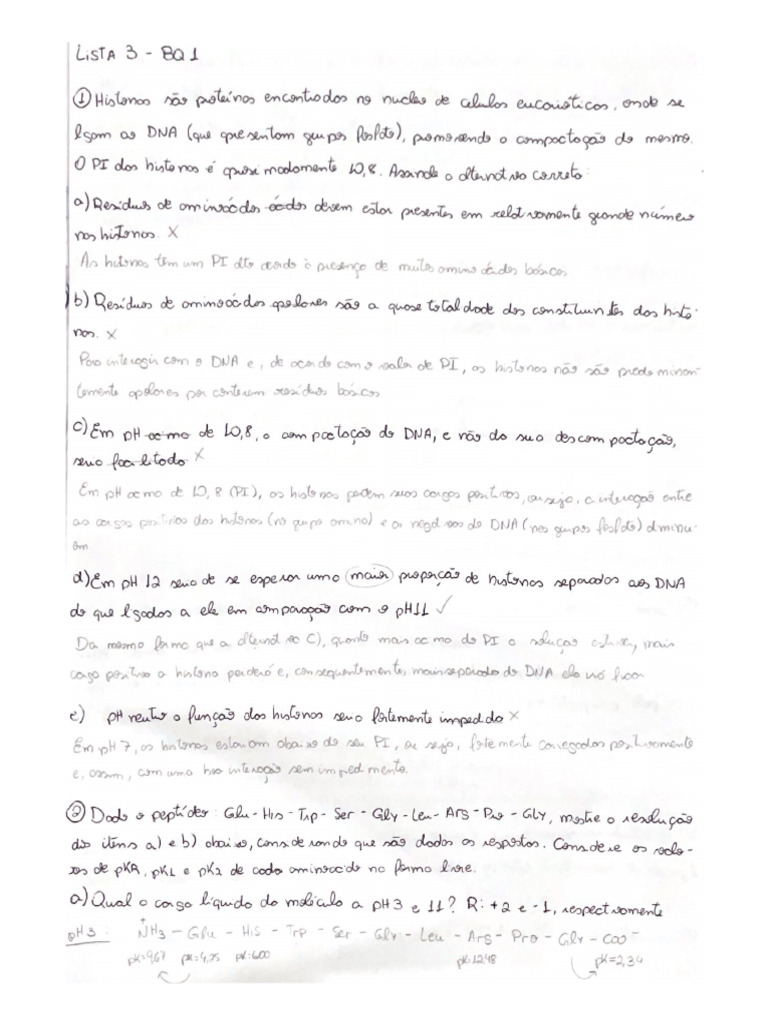 LISTA 3 - BQ1
① Histonas são proteínas encontradas no nucleo de celulas eucarióticas, onde se
ligam ao DNA (que apresentam grupos fosfato), promovendo a compactação do mesmo.
O PI das histonas é aproximadamente 10,8. Assinale a alternativa correta:
a) Resíduos de aminoácidos ácidos devem estar presentes em relativamente grande número
nas histonas. X
As histonas tem um PI alto devido à presença de muitos aminoácidos básicos
b) Resíduos de aminoácidos apolares são a quase totalidade dos constituintes das histo-
nas. X
Para interagir com o DNA e, de acordo com o valor de PI, as histonas não são predominan-
temente apolares por conterem resíduos básicos
c) Em pH acima de 10,8, a compactação do DNA, e não da sua descompactação,
seria facilitada X
Em pH acima de 10,8 (PI), as histonas perdem suas cargas positivas, ou seja, a interação entre
as cargas positivas das histonas (no grupo amino) e as negativas do DNA (nos grupos fosfato) diminu-
em
d) Em pH 12 seria de se esperar uma maior proporção de histonas separadas ao DNA
do que ligadas a ele em comparação com o pH11 ✓
Da mesma forma que a alternativa C), quanto mais acima do PI a solução estiver, mais
carga positiva a histona perderá e, consequentemente, mais separada do DNA ela irá ficar
e) pH neutro a função das histonas seria fortemente impedida X
Em pH 7, as histonas estariam abaixo do seu PI, ou seja, fortemente carregadas positivamente
e, assim, com uma boa interação sem impedimento.
② Dado o peptídeo: Glu-His-Trp-Ser-Gly-Leu-Arg-Pro-Gly, mostre a resolução
dos itens a) e b) abaixo, considerando que são dadas as respostas. Considere os valo-
res de pKR, pK1 e pK2 de cada aminoácido na forma livre.
a) Qual a carga líquida da molécula a pH 3 e 11? R: +2 e -1, respectivamente
pH3: +NH3 - Glu - His - Trp - Ser - Gly - Leu - Arg - Pro - Gly - COO-
pK=9,67 pK=4,25 pK=6,00 pK=12,48 pK=2,34